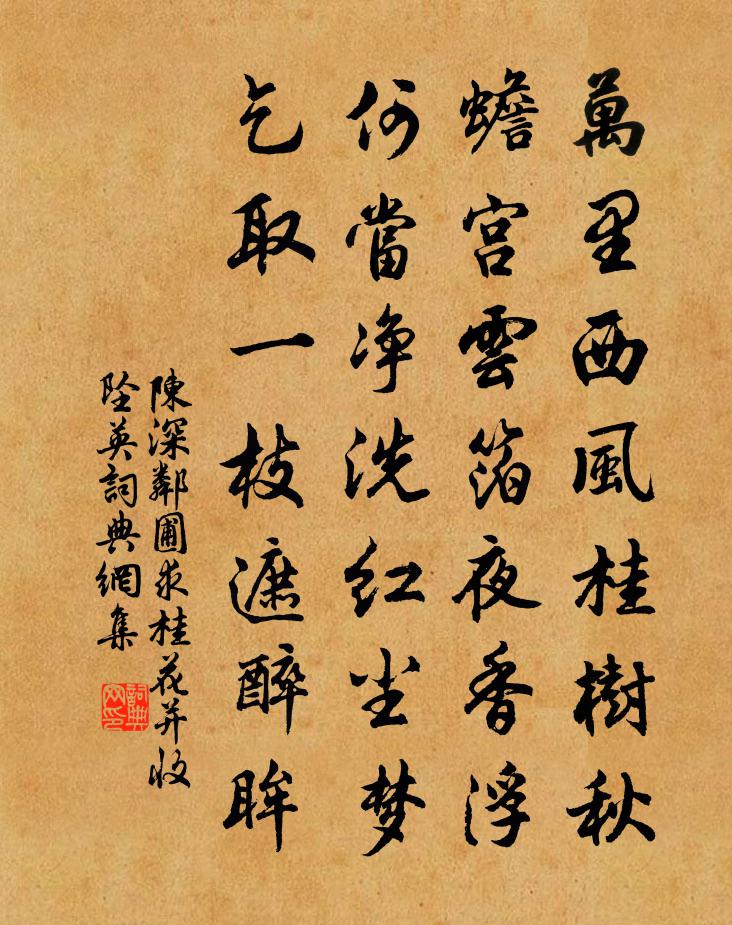 萬里西風桂樹秋
蟾宮雲箔夜香浮
何當净洗红尘梦
乞取一枝遮醉眸
陳深鄰圃求桂花并收
墜英詞典網集
詞典网印